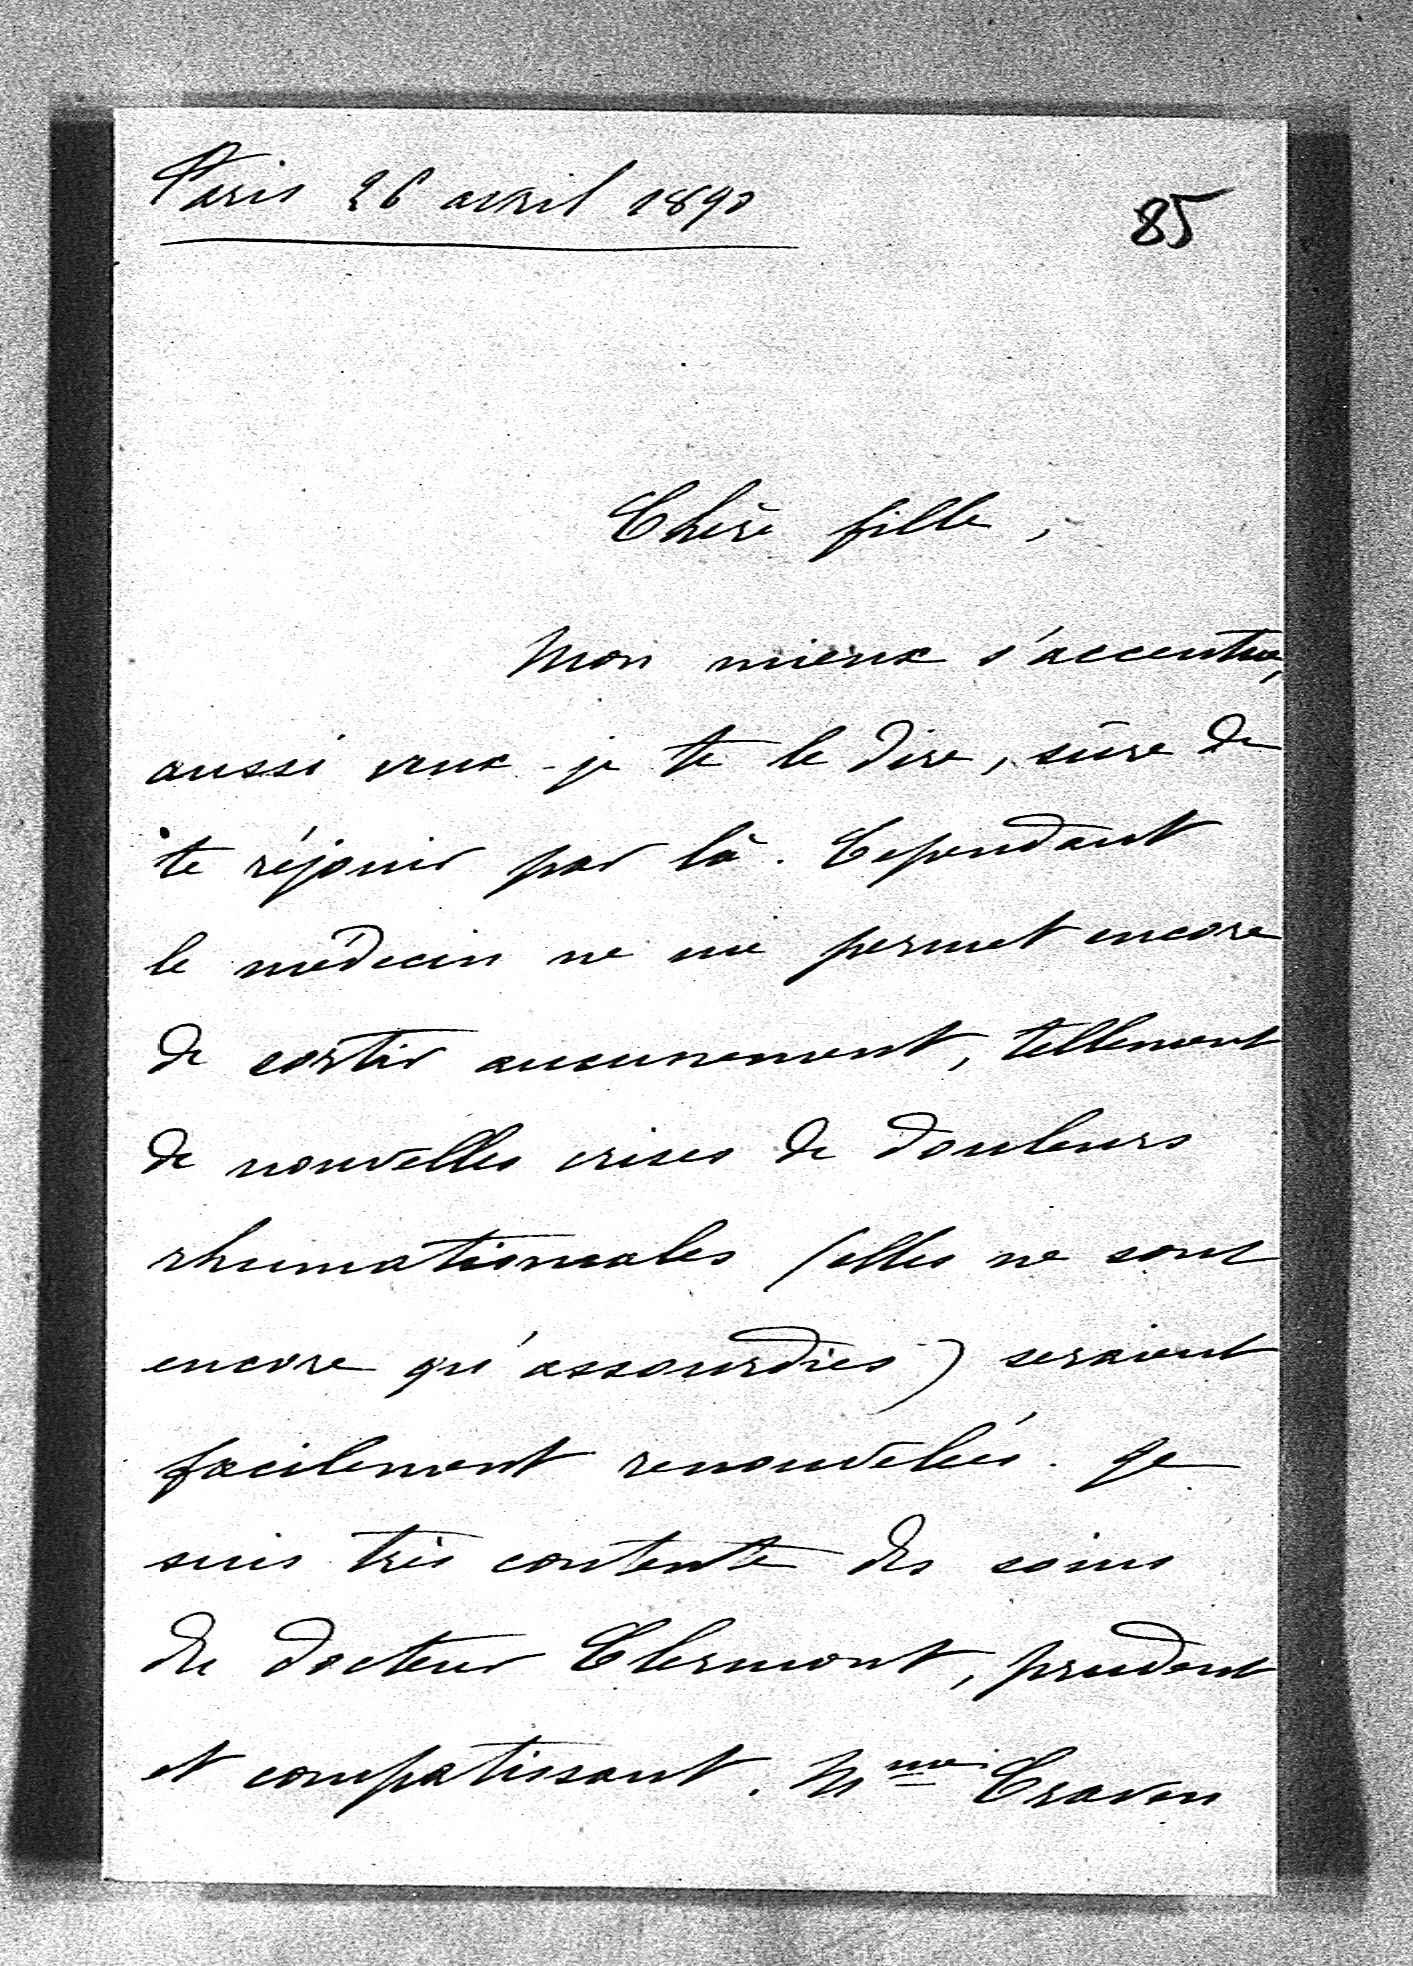 Paris 26 avril 1890
85
Chère fille,
Mon mieux s'accentue,
aussi veux-je te le dire, sûre de
te réjouir par là. Cependant
le médecin ne me permet encore
de sortir aucunement, tellement
de nouvelles crises de douleurs
rhumatismales (elles ne sont
encore qu'assourdies) seraient
facilement renouvelées. Je
suis très contente des soins
du docteur Clermont, prudent
et compatissant. Mme Craven